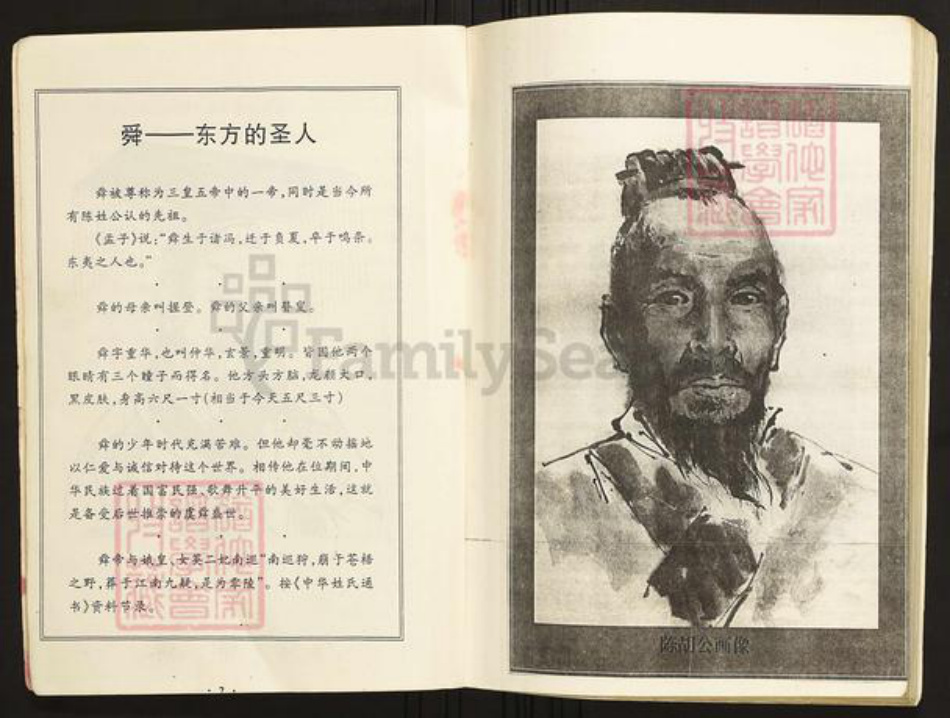 舜——东方的圣人
舜被尊称为三皇五帝中的一帝,同时是当今所
有陈姓公认的先祖。
《孟子》说:“舜生于诸冯,迁于负夏,卒于鸣条。
东夷之人也。”
舜的母亲叫握登。舜的父亲叫瞽叟。
舜字重华,也叫仲华,玄景,重明。皆因他两个
眼睛有三个瞳子而得名。他方头方脑,龙颜大口,
黑皮肤,身高六尺一寸(相当于今天五尺三寸)
舜的少年时代充满苦难。但他却毫不动摇地
以仁爱与诚信对待这个世界。相传他在位期间,中
华民族过着国富民强、歌舞升平的美好生活,这就
是备受后世推崇的虞舜盛世。
舜帝与娥皇、女英二妃南巡“南巡狩,崩于苍梧
之野,葬于江南九疑,是为零陵”。按《中华姓氏通
书》资料节录。
· 2 ·
陈胡公画像
FamilySea